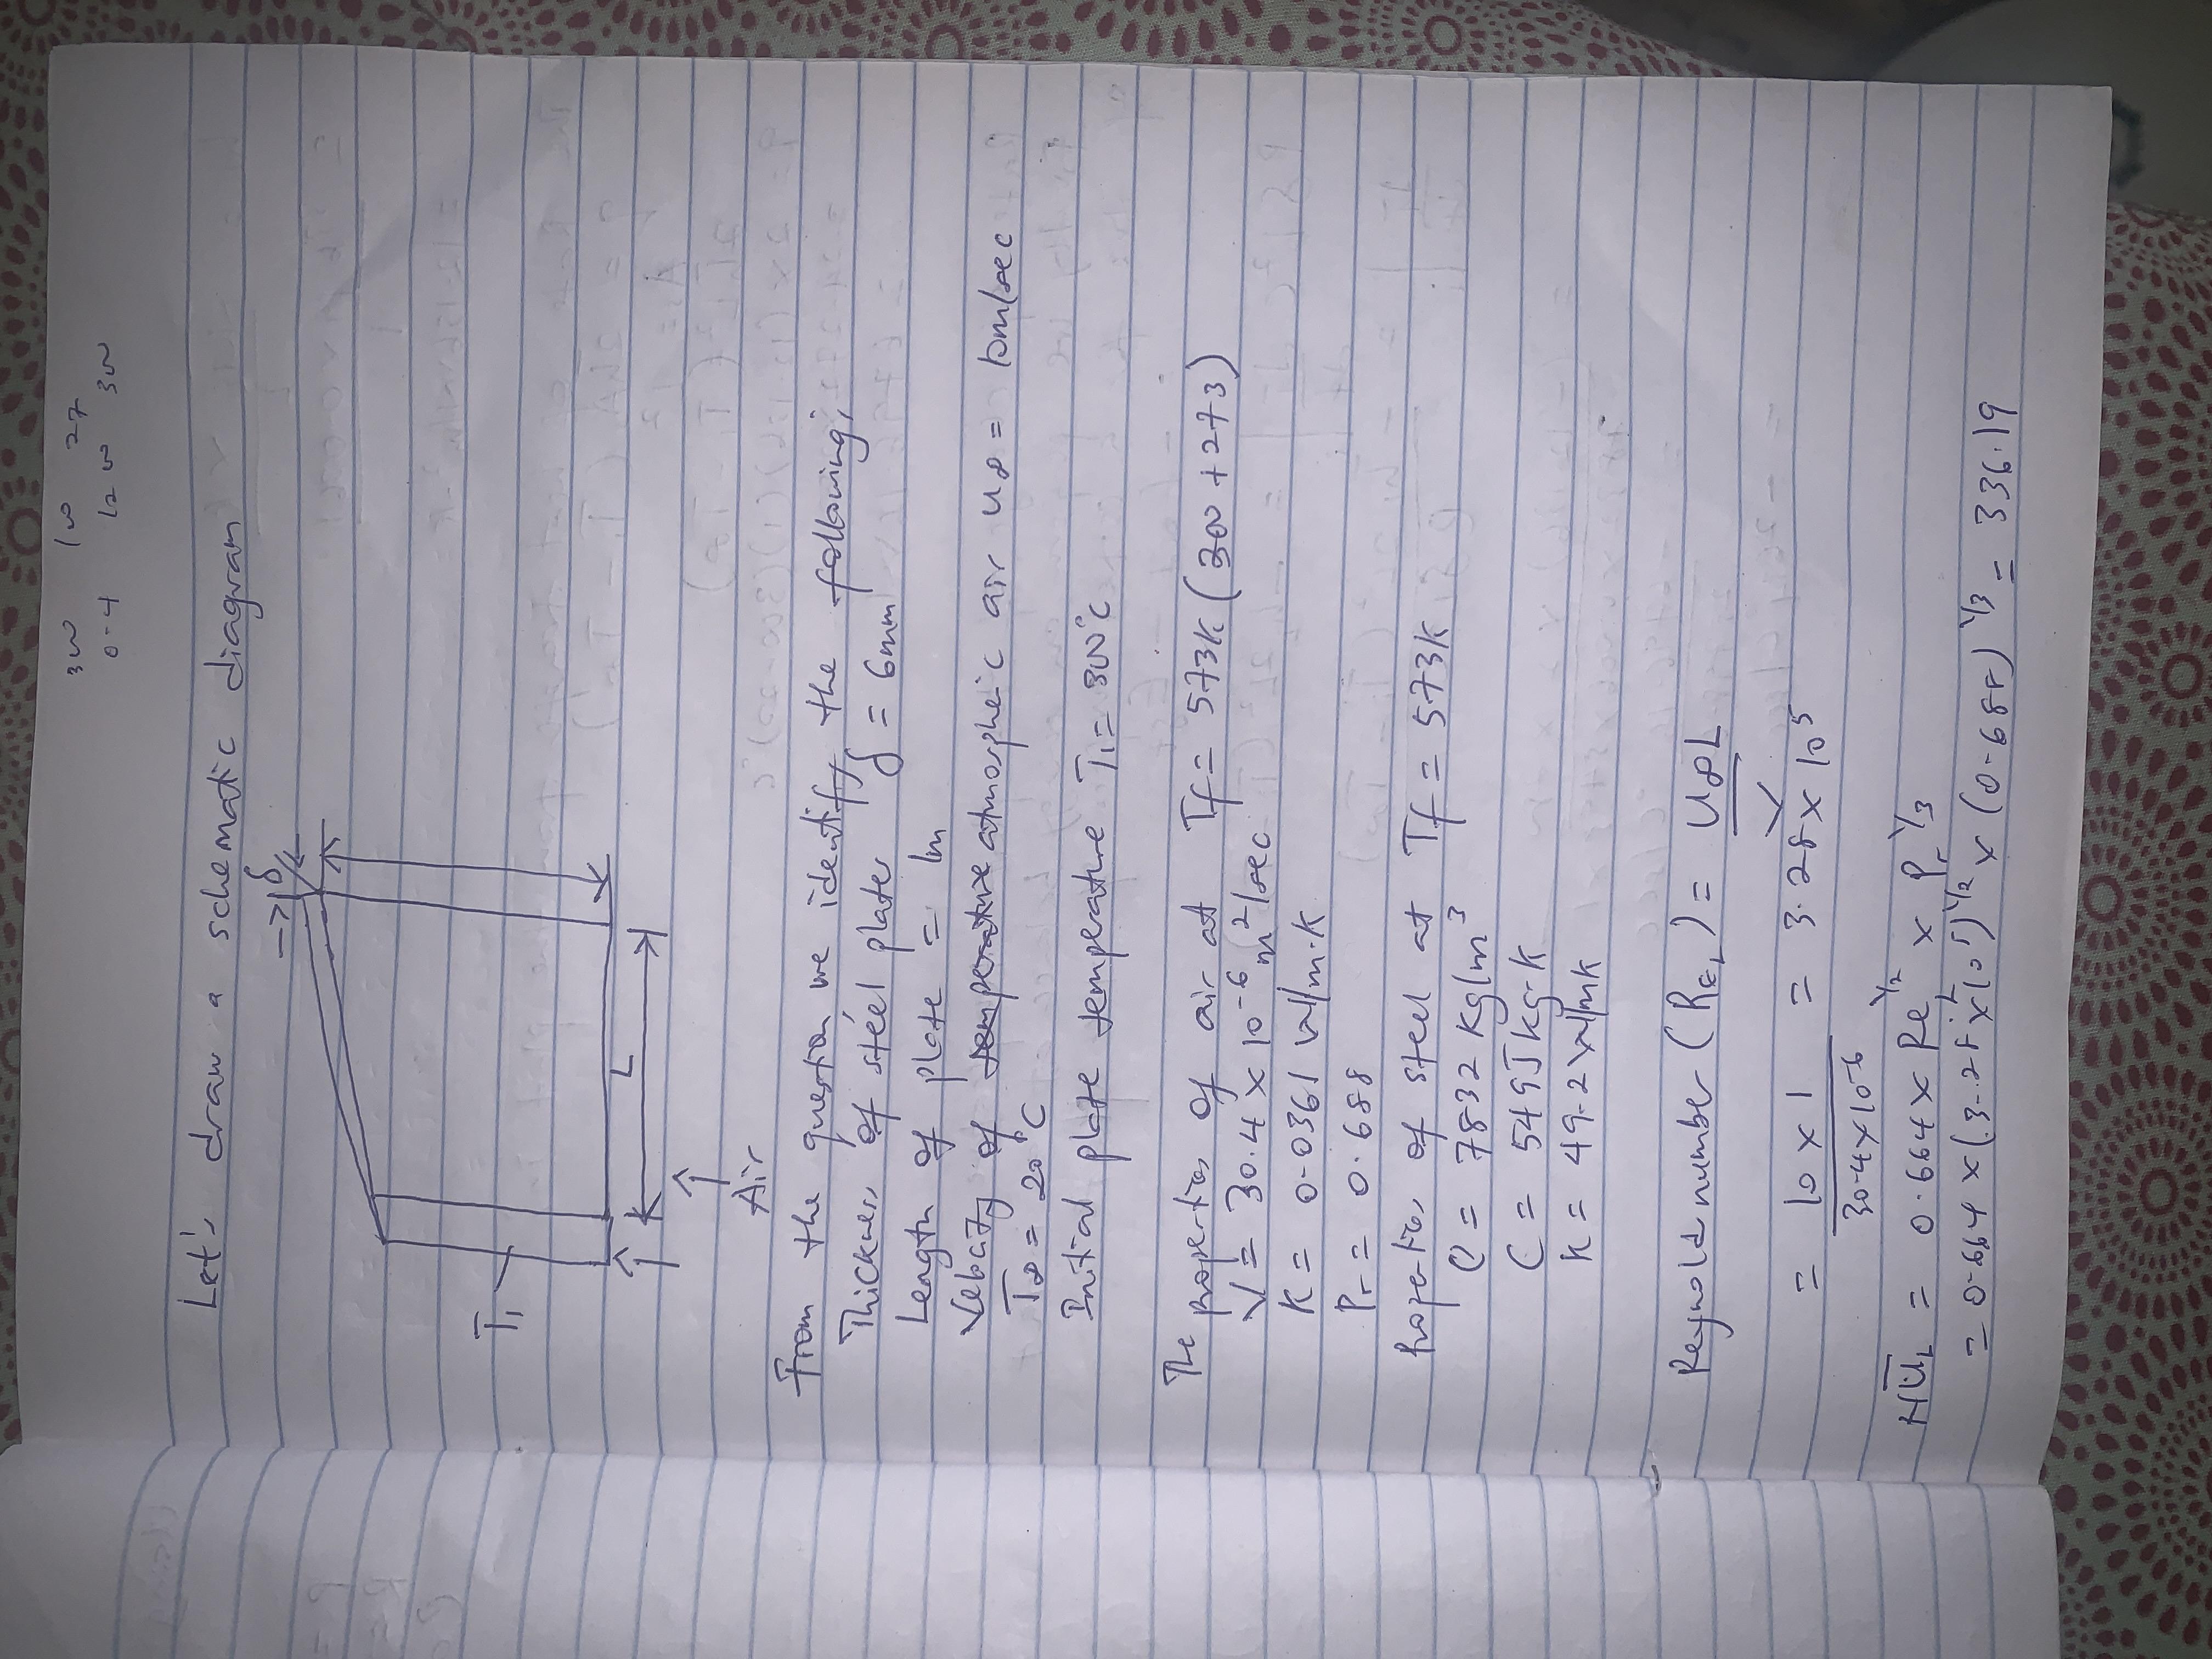 300 100 27
0.4 1200 300
Let's draw a schematic diagram
δ
T₁
L
Air
From the question we identify the following;
Thickness of steel plates δ = 6mm
Length of plate = 1m
Velocity of temperative atmospheric air u∞ = 10m/sec
T∞ = 20°C
Initial plate temperature T₁ = 300°C
The properties of air at Tf = 573K (300 + 273)
V = 30.4 × 10⁻⁶ m²/sec
K = 0.0361 W/m·K
Pr = 0.688
Properties of steel at Tf = 573K
ρ = 7832 kg/m³
C = 549 J kg-K
K = 49.2 W/mK
Reynold number (ReL) = u∞L
V
= 10 × 1 = 3.28 × 10⁵
30.4×10⁻⁶
N̅U̅L = 0.664 × ReL^1/2 × Pr^1/3
= 0.664 × (3.28×10⁵)^1/2 × (0.688)^1/3 = 336.19